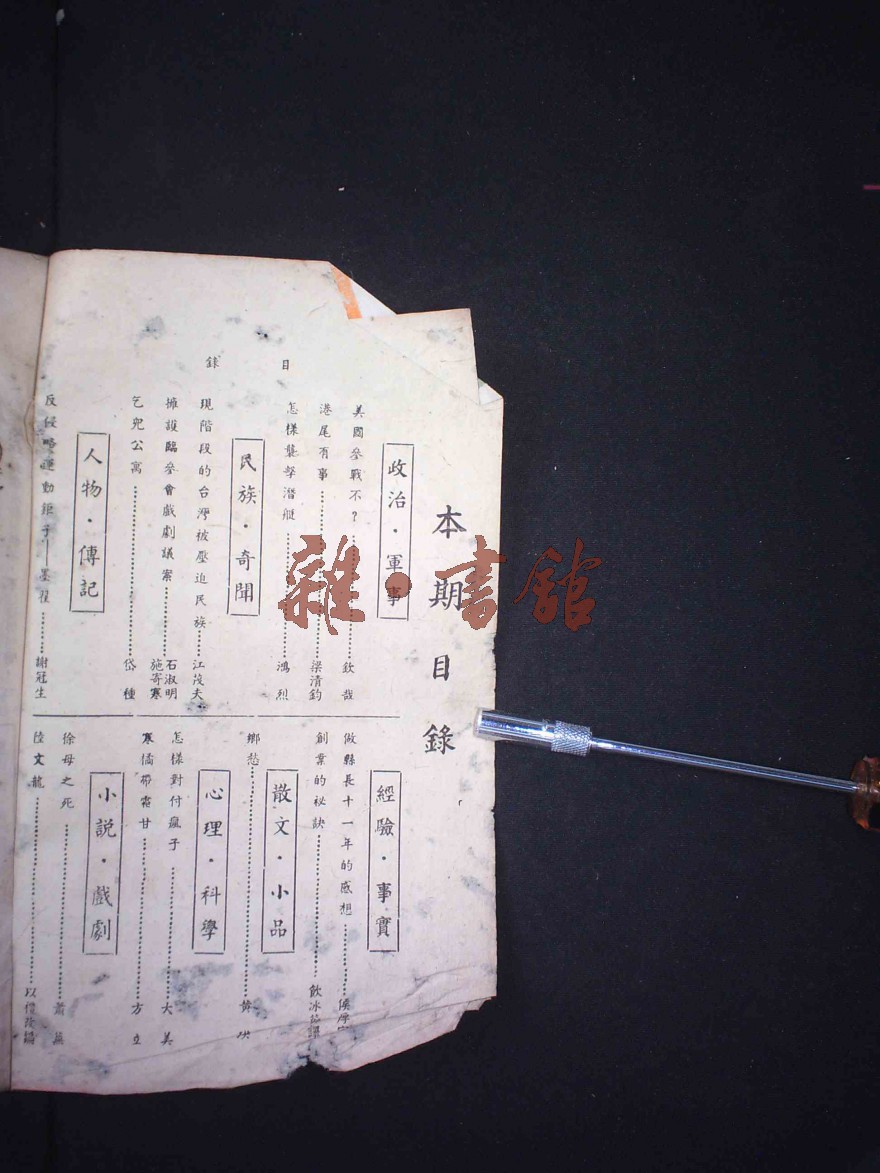 本期目錄
目錄
政治・軍事
美國參戰不？欽哉
港尾有事梁清鈞
怎樣襲擊潛艇鴻烈
民族・奇聞
現階段的台灣被壓迫民族江茂夫
擁護臨參會戲劇議案石淑明 施寄寒
乞兒公寓岱種
人物・傳記
反侵略運動鉅子—墨翟謝冠生
經驗・事實
做縣長十一年的感想侯厚
創業的秘訣飲冰
散文・小品
鄉愁黃
心理・科學
怎樣對付瘋子大美
寒僑帶霜甘方立
小說・戲劇
徐母之死蕭
陸文龍以僧改編
雜・書館